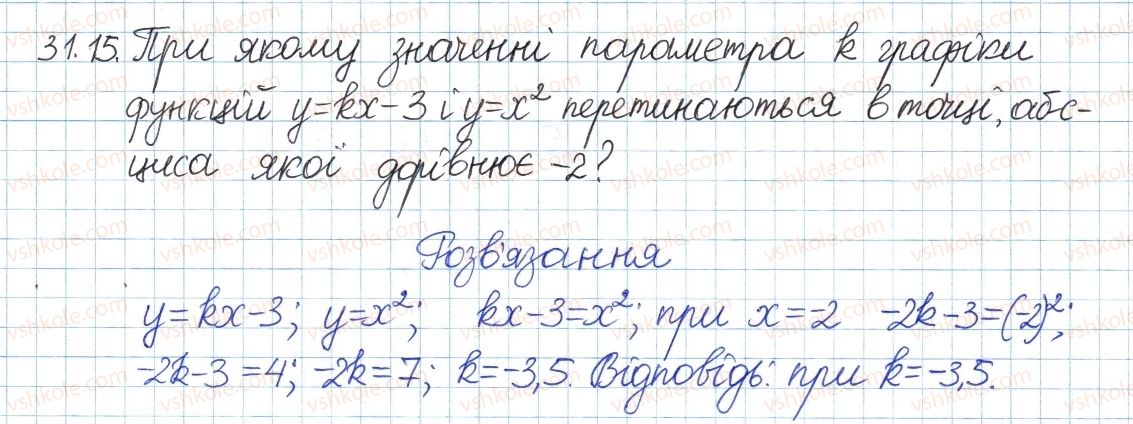 31.15. При якому значенні параметра k графіки
функцій y=kx-3 і y=x² перетинаються в точці, абс-
циса якої дорівнює -2?
Розв'язання
y=kx-3; y=x²; kx-3=x²; при x=-2 -2k-3=(-2)²;
-2k-3=4; -2k=7; k=-3,5. Відповідь: при k=-3,5.